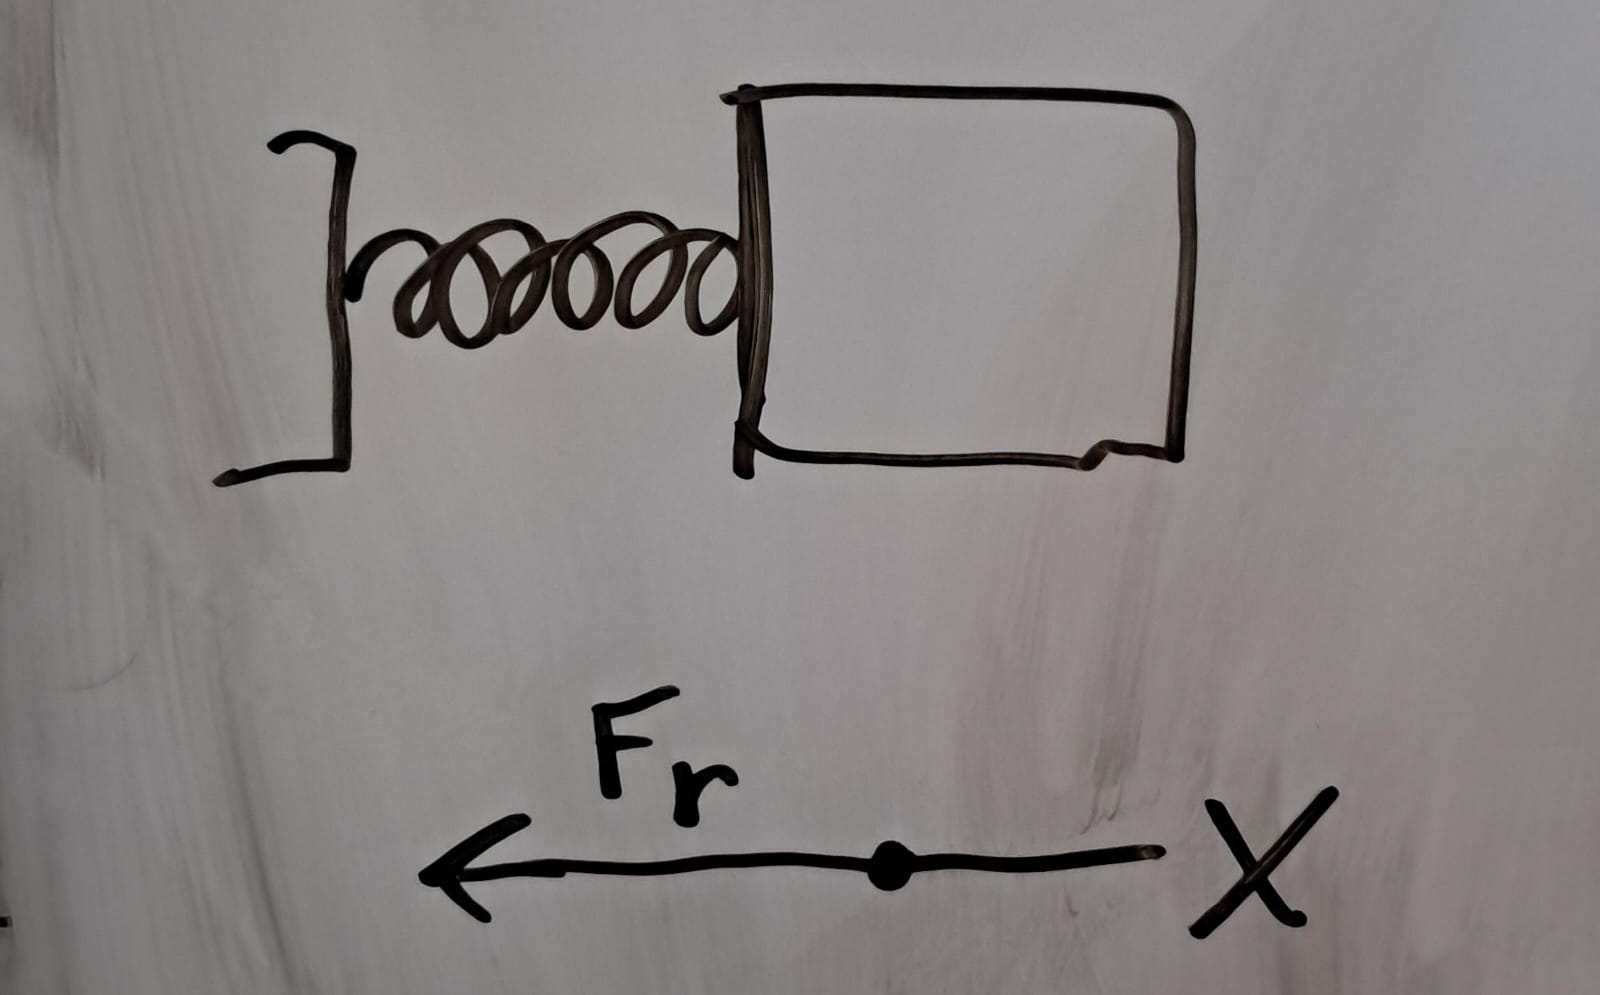 Fr
X